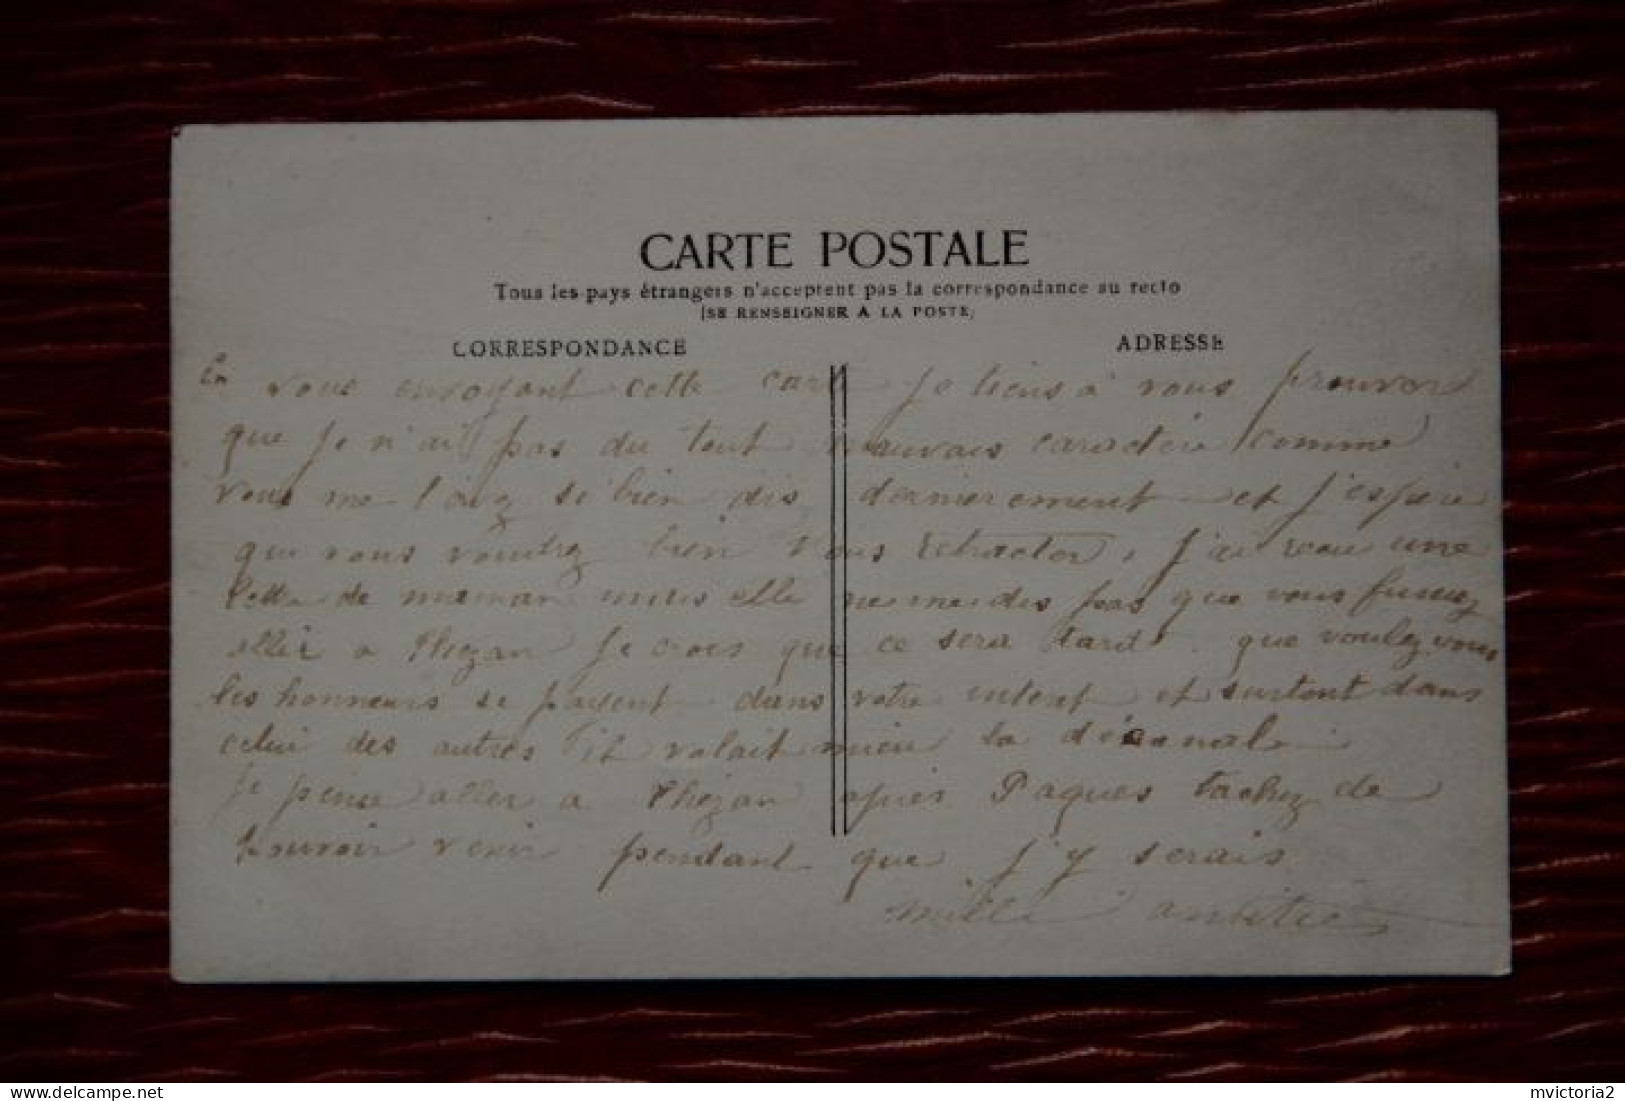 CARTE POSTALE
Tous les pays étrangers n'acceptent pas la correspondance au recto
(SE RENSEIGNER A LA POSTE)
CORRESPONDANCE
ADRESSE
En vous envoyant cette carte je tiens à vous prouver
que je n'ai pas du tout mauvais caractère comme
vous me l'avez si bien dis dernierement et j'espère
que vous voudrez bien vous retracter, j'ai recu une
lettre de maman mais elle ne me dis pas que vous fussiez
aller a Thezan je crois que ce sera tard. que voulez vous
les honneurs se payent dans votre interet et surtout dans
celui des autres il valait mieu la décanale
je pense aller a Thezan après Paques tachez de
pouvoir venir pendant que j'y serais
mille amitiés
mvictoria2